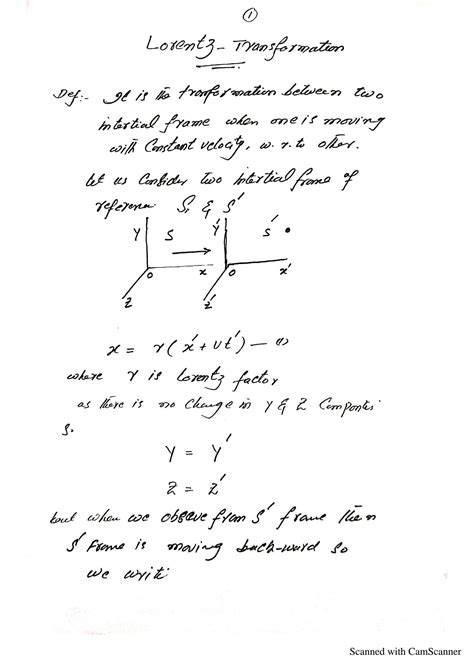 ①
Lorentz - Transformation
Def:- It is the tranformation between two
intertial frame when one is moving
with Constant velocity, w.r.to other.
let us Consider two intertial frame of
reference S, & S'
Y S Y' S'
O x O x'
Z Z'
x = γ(x' + vt') — (1)
where γ is lorentz factor
as there is no change in Y & Z
So
Y = Y'
Z = Z'
but when we obseve from S' frame then
S' Frame is moving back-ward so
we write
Scanned with CamScanner